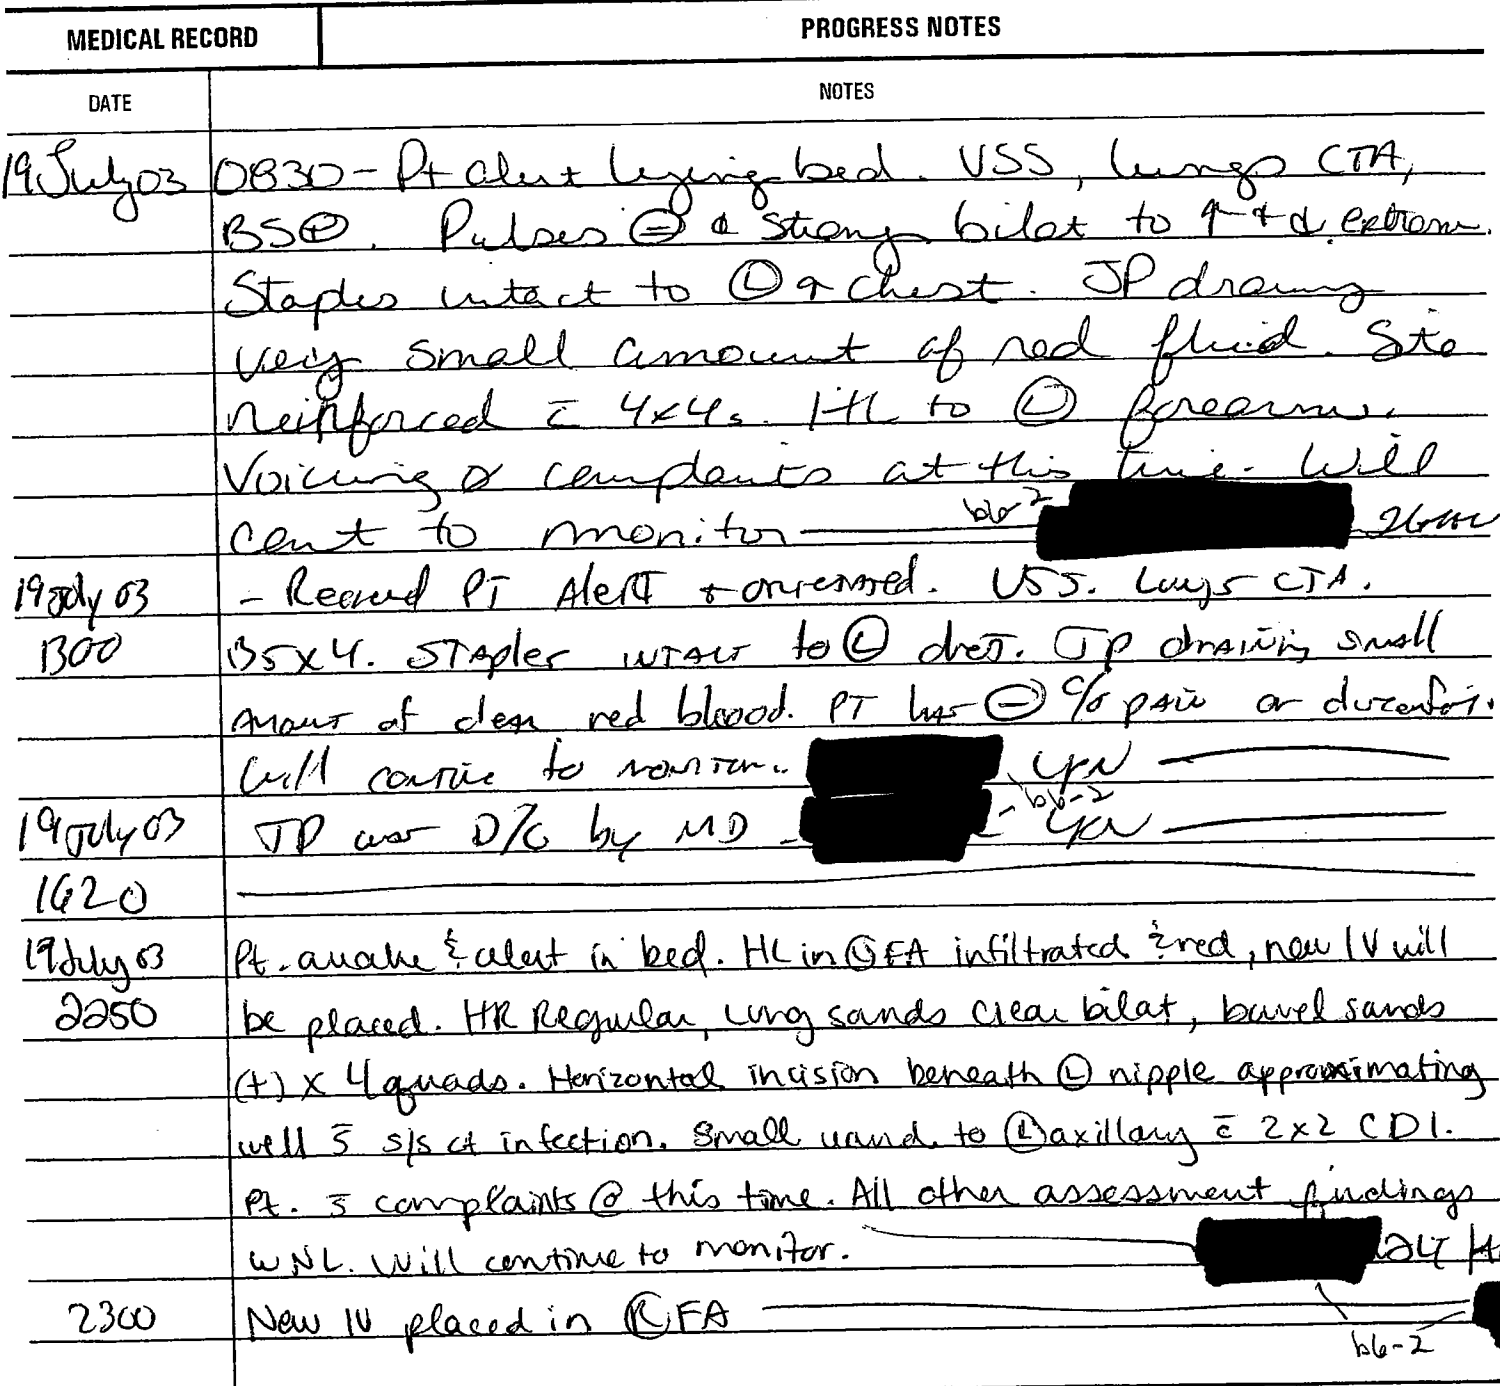 MEDICAL RECORD
PROGRESS NOTES
DATE
NOTES
19 July 03 0830 - Pt alert lying bed. VSS, lungs CTA,
BS⊕. Pulses ⊜ & strong bilat to ↑ + ↓ extrem.
Staples intact to Ⓛ ↑ chest. JP draing
very small amount of red fluid. Site
reinforced c̄ 4x4s. HL to Ⓛ forearm.
Voicing ∅ complaints at this time. Will
cont to monitor b6-2
19 July 03 - Received PT Alert + oriented. VSS. Lungs CTA.
1300 BSx4. STAples INTACT to Ⓛ chest. JP draining small
amount of clear red blood. PT has ⊖ c/o pain or discomfort.
Will continue to monitor.
b6-2
19 July 03 JP was D/C by MD
1620
19 July 03 Pt. awake & alert in bed. HL in Ⓛ FA infiltrated & red, new IV will
2250 be placed. HR Regular, lung sounds clear bilat, bowel sounds
(+) x 4 quads. Horizontal incision beneath Ⓛ nipple approximating
well s̄ s/s of infection. Small wound to Ⓛ axillary c̄ 2x2 CDI.
Pt. s̄ complaints @ this time. All other assessment findings
WNL. Will continue to monitor.
2300 New IV placed in Ⓡ FA
b6-2